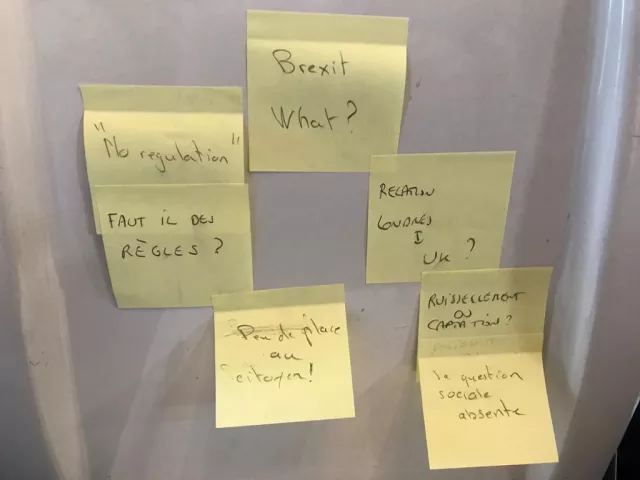 Brexit
What?
"No regulation"
FAUT IL DES
RÈGLES ?
RELATION
LONDRES
I
UK ?
Peu de place
au
citoyen!
RUISSELLEMENT
OU
CAPTATION ?
la question
sociale
absente